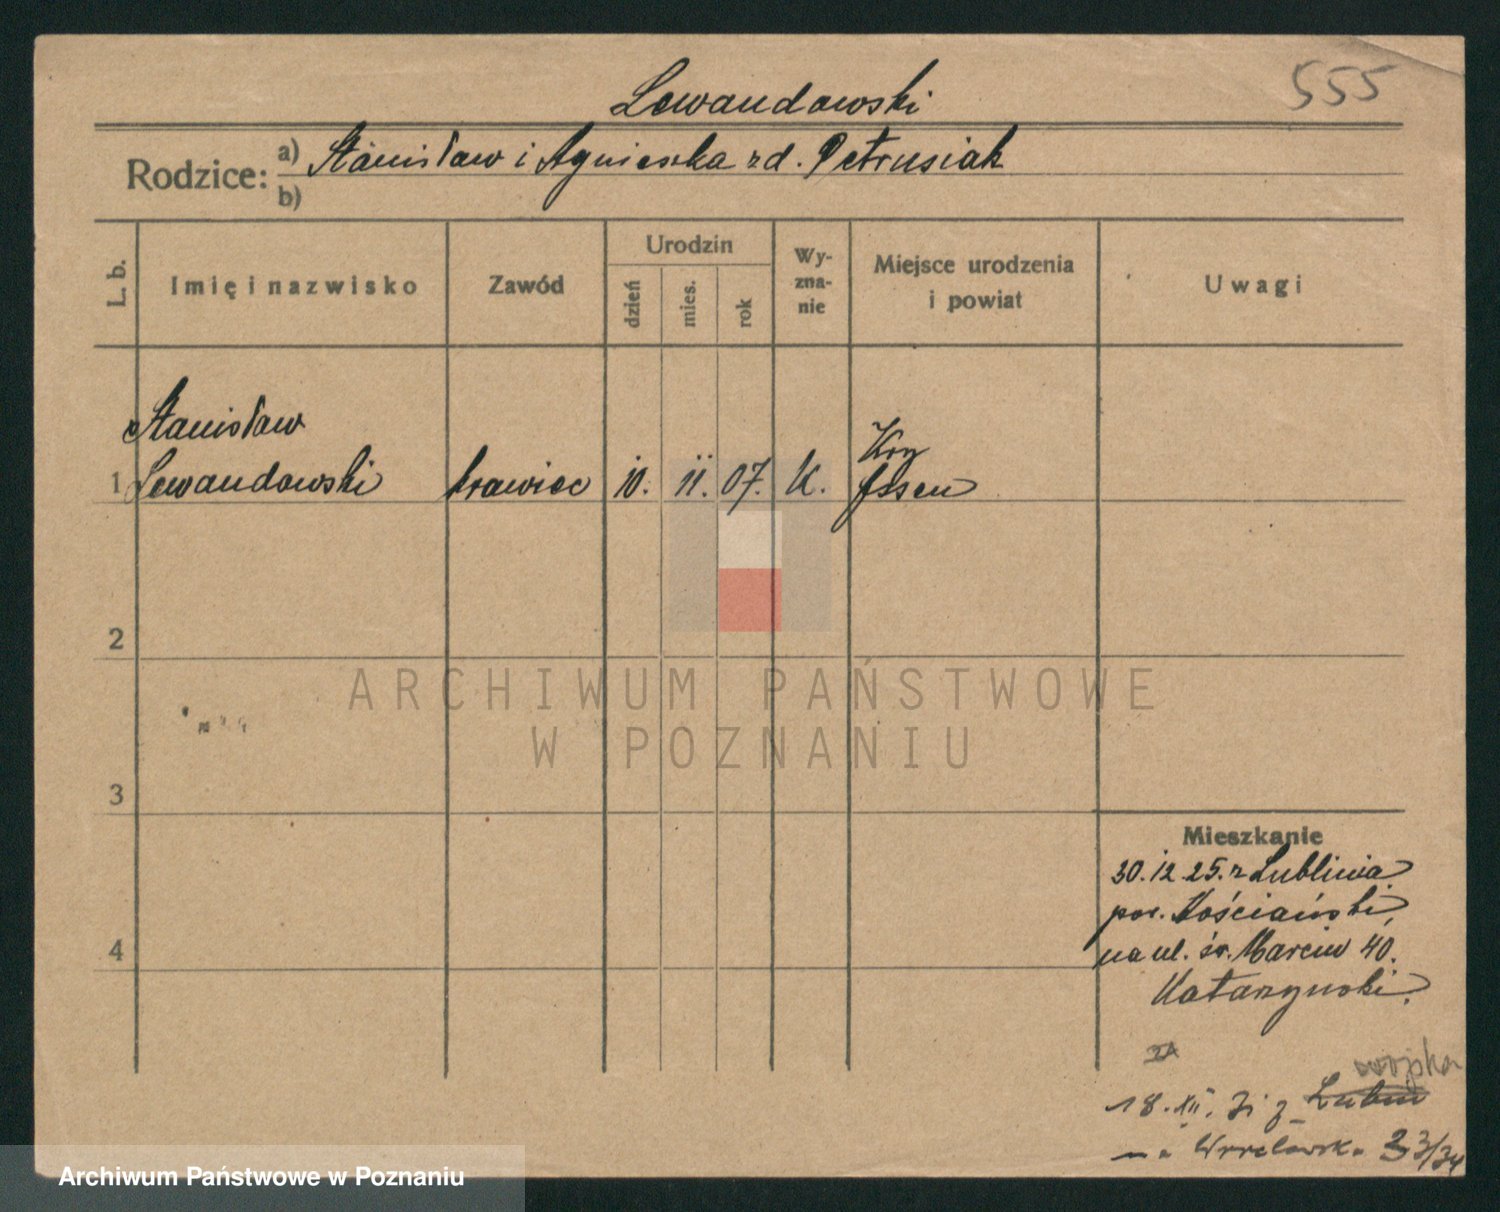 555
Lewandowski
Rodzice: a) Stanisław i Agnieszka zd. Petrusiak
b)
L. b.
Imię i nazwisko
Zawód
Urodzin
dzień
mies.
rok
Wy-
zna-
nie
Miejsce urodzenia
i powiat
Uwagi
Stanisław
1 Lewandowski krawiec 10. 11. 07. K. Essen
2
3
4
ARCHIWUM PAŃSTWOWE
W POZNANIU
Mieszkanie
30.12.25. z Lublinia
pow. Kościański,
na ul. św. Marcin 40.
Katarzynski.
wojska
18. XII. 31 z Lubin
na Wrocławska 33/34
Archiwum Państwowe w Poznaniu